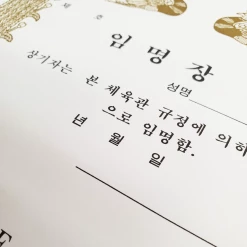 제 호
임명장
성명
상기자는 본 체육관 규정에 의하
으로 임명함.
년 월 일